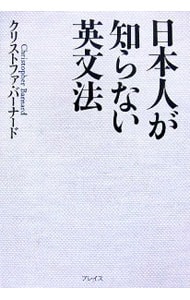 日本人が
知らない
英文法
Christopher Barnard
クリストファ・バーナード
プレイス